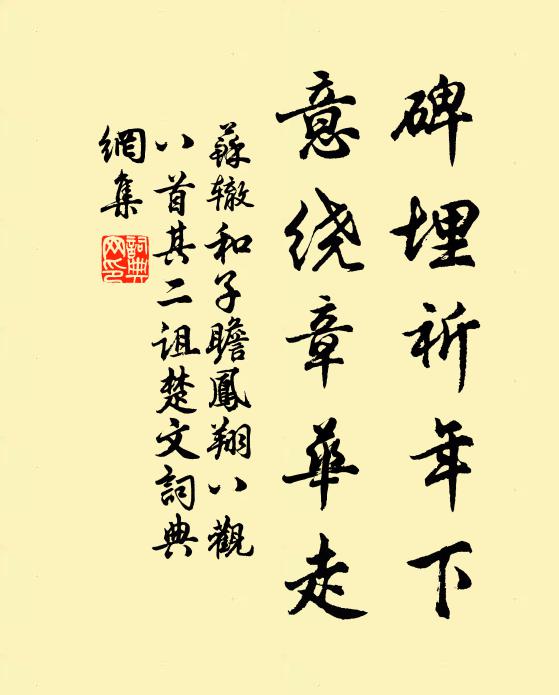 碑埋祈年下
意绕章华走
蘇辙和子瞻鳳翔八觀
八首其二诅楚文詞典
網集
詞典网印